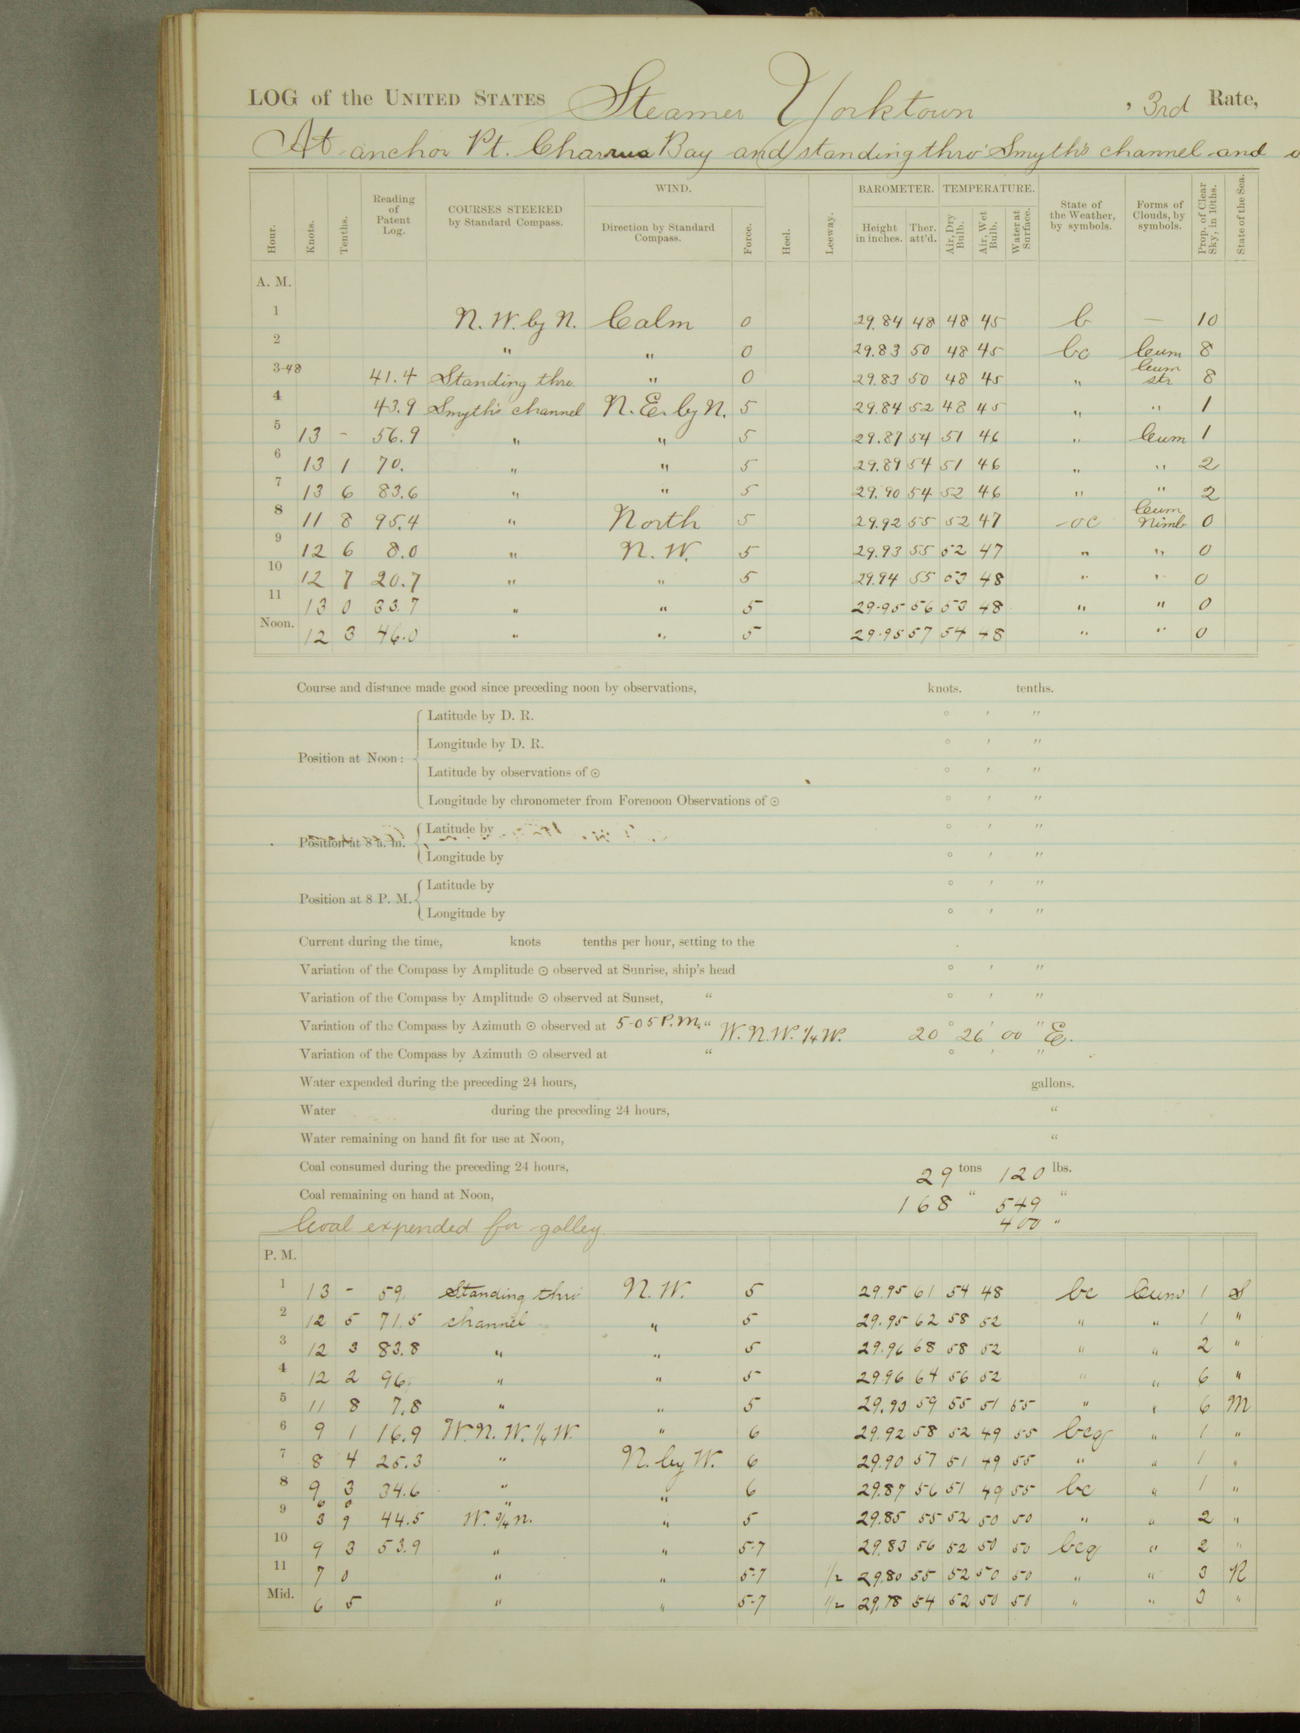 LOG of the UNITED STATES Steamer Yorktown , 3rd Rate,
At anchor Pt. Charrua Bay and standing thro' Smyth's channel and
WIND. BAROMETER. TEMPERATURE.
Hour. Knots. Tenths. Reading of Patent Log. COURSES STEERED by Standard Compass. Direction by Standard Compass. Force. Heel. Leeway. Height in inches. Ther. att'd. Air, Dry Bulb. Air, Wet Bulb. Water at Surface. State of the Weather, by symbols. Forms of Clouds, by symbols. Prop. of Clear Sky, in 10ths. State of the Sea.
A. M.
1 N. W. by N. Calm 0 29.84 48 48 45 b — 10
2 " " 0 29.83 50 48 45 bc Cum 8
3-48 41.4 Standing thro " 0 29.83 50 48 45 " Cum str 8
4 43.9 Smyth's channel N. E. by N. 5 29.84 52 48 45 " " 1
5 13 - 56.9 " " 5 29.87 54 51 46 " Cum 1
6 13 1 70. " " 5 29.89 54 51 46 " " 2
7 13 6 83.6 " " 5 29.90 54 52 46 " " 2
8 11 8 95.4 " North 5 29.92 55 52 47 oc Cum Nimb 0
9 12 6 8.0 " N. W. 5 29.93 55 52 47 " " 0
10 12 7 20.7 " " 5 29.94 55 53 48 " " 0
11 13 0 33.7 " " 5 29.95 56 53 48 " " 0
Noon. 12 3 46.0 " " 5 29.95 57 54 48 " " 0
Course and distance made good since preceding noon by observations, knots. tenths.
Position at Noon:
Latitude by D. R. ° ' "
Longitude by D. R. ° ' "
Latitude by observations of ☉ ° ' "
Longitude by chronometer from Forenoon Observations of ☉ ° ' "
Position at 8 a. m. Latitude by ° ' "
Longitude by ° ' "
Position at 8 P. M. Latitude by ° ' "
Longitude by ° ' "
Current during the time, knots tenths per hour, setting to the
Variation of the Compass by Amplitude ☉ observed at Sunrise, ship's head ° ' "
Variation of the Compass by Amplitude ☉ observed at Sunset, " ° ' "
Variation of the Compass by Azimuth ☉ observed at 5-05 P.M. " W. N. W. 1/4 W. 20 ° 26 ' 00 " E.
Variation of the Compass by Azimuth ☉ observed at " ° ' "
Water expended during the preceding 24 hours, gallons.
Water during the preceding 24 hours, "
Water remaining on hand fit for use at Noon, "
Coal consumed during the preceding 24 hours, 29 tons 120 lbs.
Coal remaining on hand at Noon, 168 " 549 "
Coal expended for galley 400 "
P. M.
1 13 - 59. Standing thro N. W. 5 29.95 61 54 48 bc Cum 1 S
2 12 5 71.5 channel " 5 29.95 62 58 52 " " 1 "
3 12 3 83.8 " " 5 29.96 68 58 52 " " 2 "
4 12 2 96. " " 5 29.96 64 56 52 " " 6 "
5 11 8 7.8 " " 5 29.93 59 55 51 55 " " 6 M
6 9 1 16.9 W. N. W. 1/4 W. " 6 29.92 58 52 49 55 bcq " 1 "
7 8 4 25.3 " N. by W. 6 29.90 57 51 49 55 " " 1 "
8 9 3 34.6 " " 6 29.87 56 51 49 55 bc " 1 "
9 6 0 "
3 9 44.5 W. 3/4 N. " 5 29.85 55 52 50 50 " " 2 "
10 9 3 53.9 " " 5-7 29.83 56 52 50 50 bcq " 2 "
11 7 0 " " 5-7 1/2 29.80 55 52 50 50 " " 3 R
Mid. 6 5 " " 5-7 1/2 29.78 54 52 50 50 " " 3 "